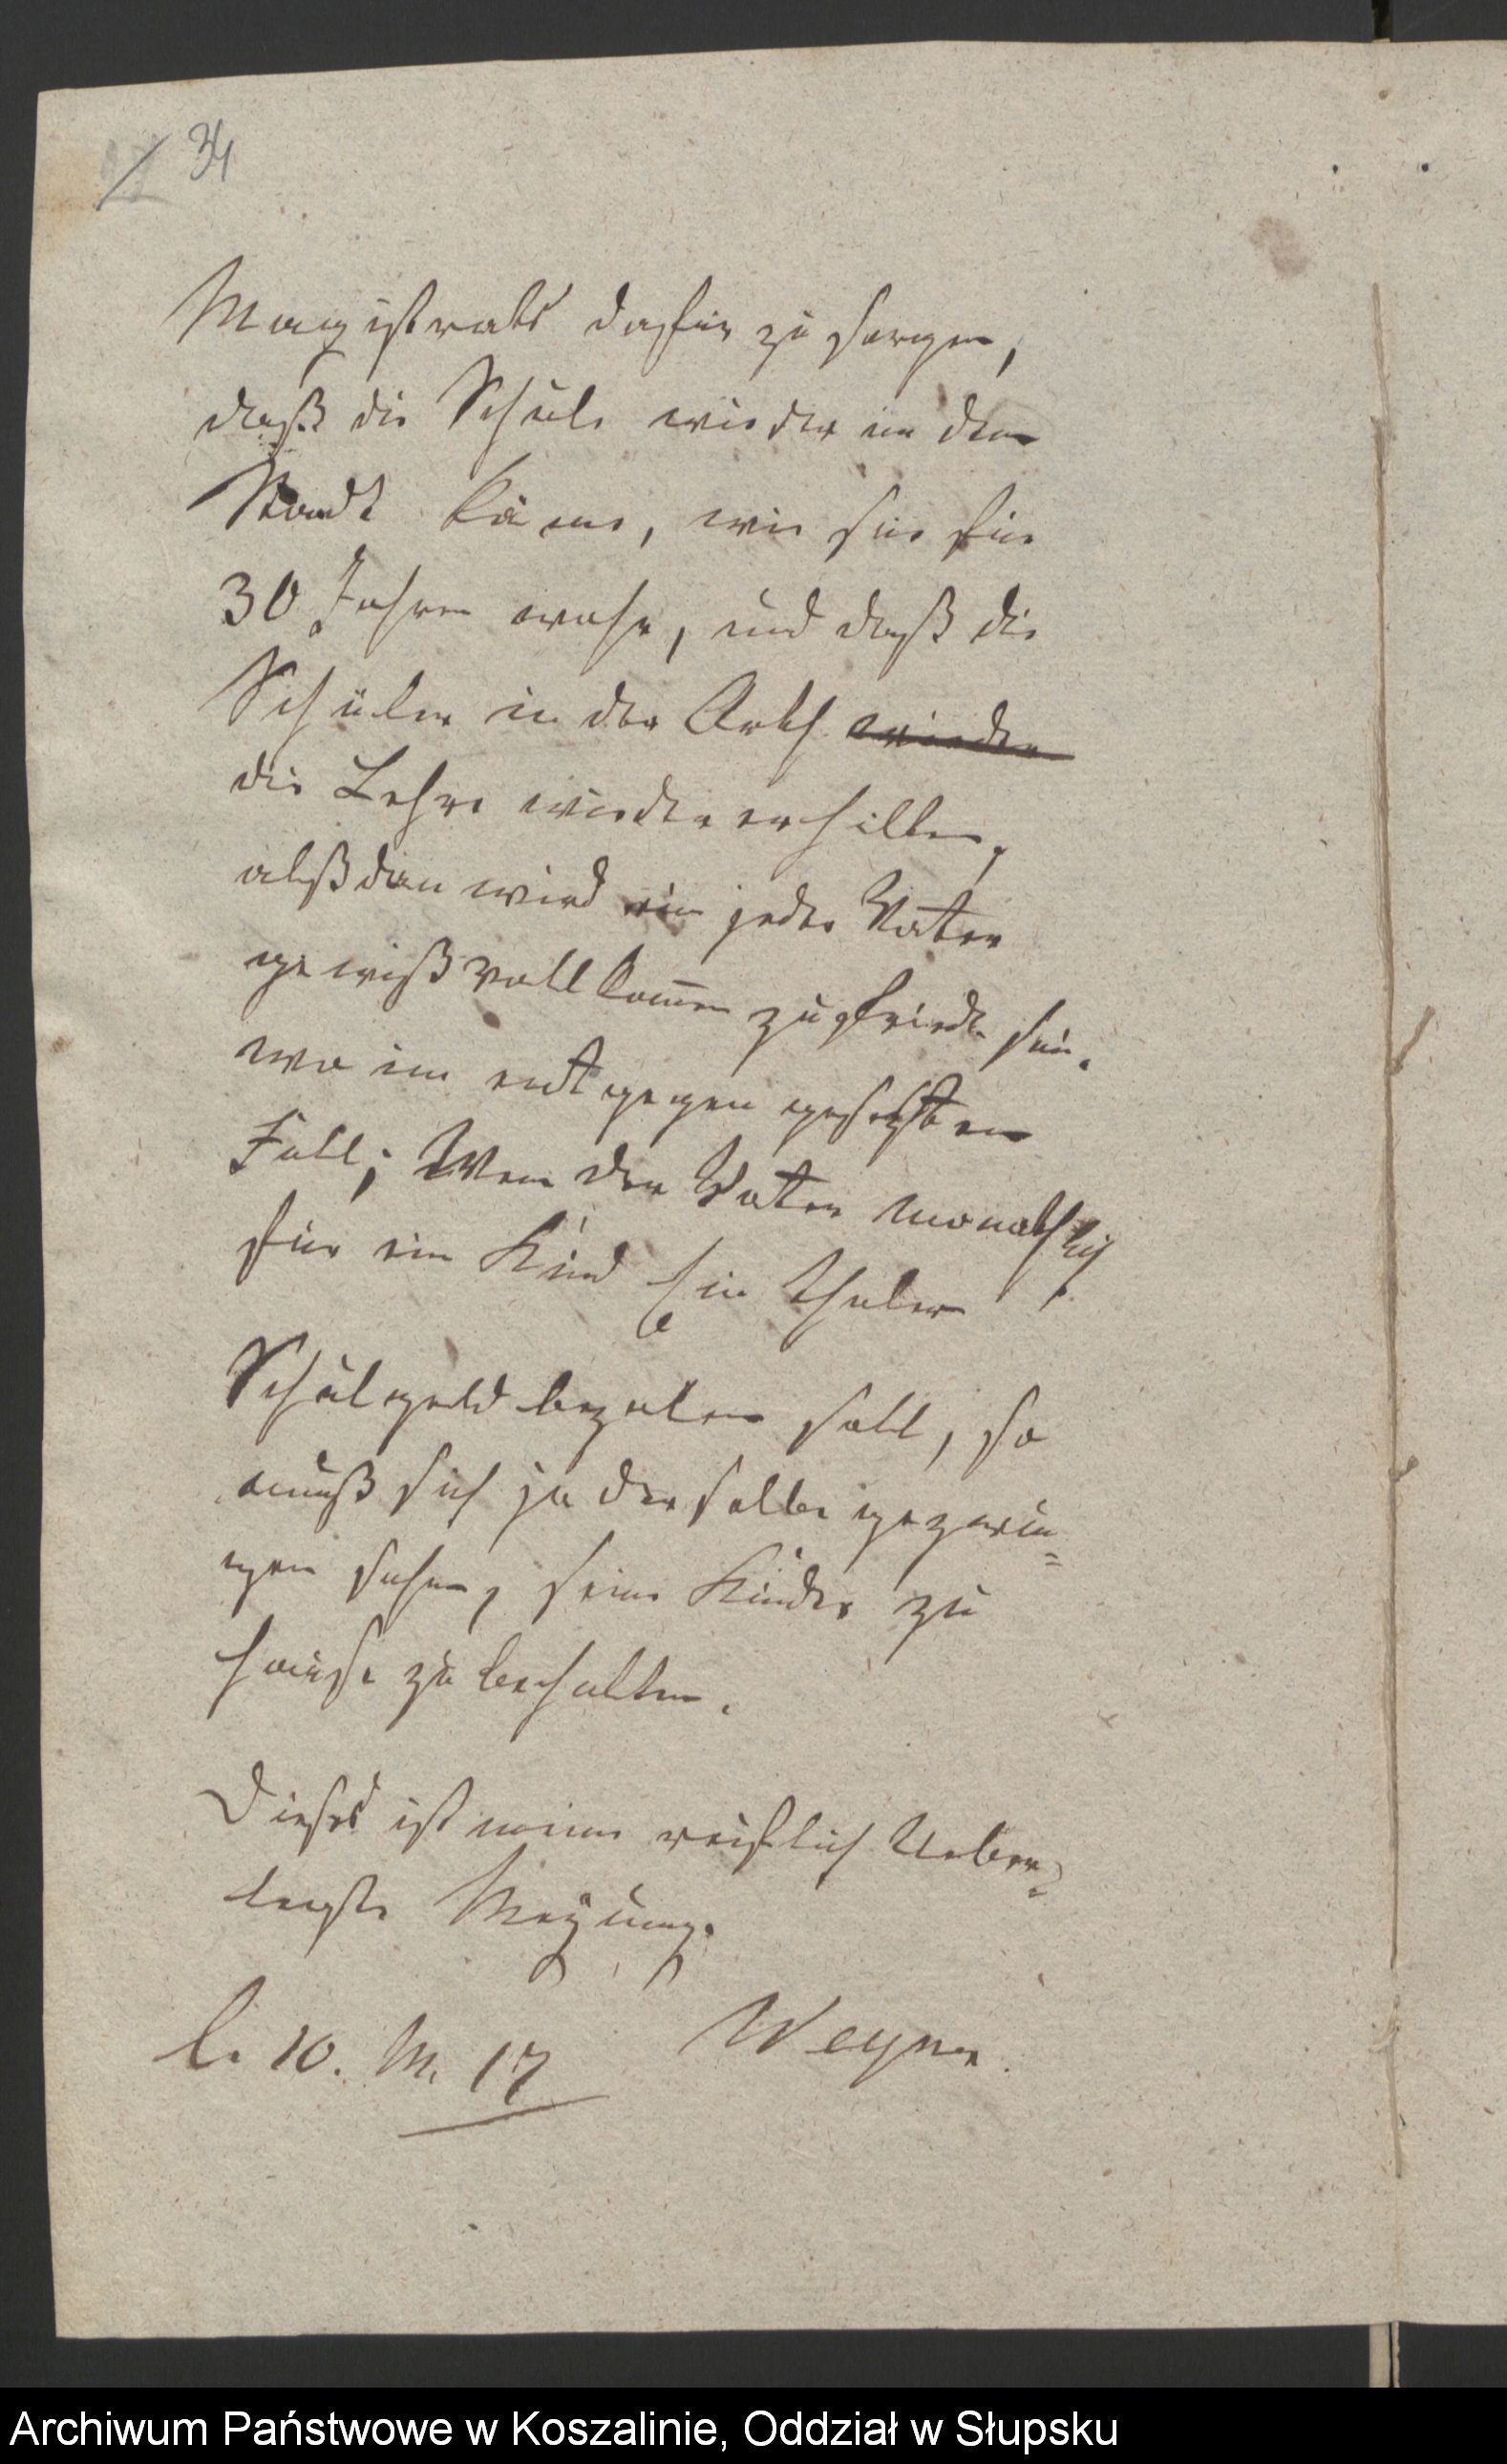 34
Magistrats dafür zu sorgen,
daß die Schule wieder in den
Standt käme, wie sie für
30 Jahren wahr, und daß die
Schüler in der Arth wieder
die Lehre wieder erhilten,
alßdan wird ein jeder Vater
gewiß vollkom̄en zufrieden sein.
wo im entgegen gesetzten
Fall; Wen der Vater monathlich
für ein Kind Ein Thaler
Schulgeld bezalen soll, so
muß sich ja derselbe gezwun=
gen sehen, seine Kinder zu
hause zu behalten.
Dieses ist meine reiflich Ueber=
legte Meÿnung.
10. M. 17 Weyer
Archiwum Państwowe w Koszalinie, Oddział w Słupsku